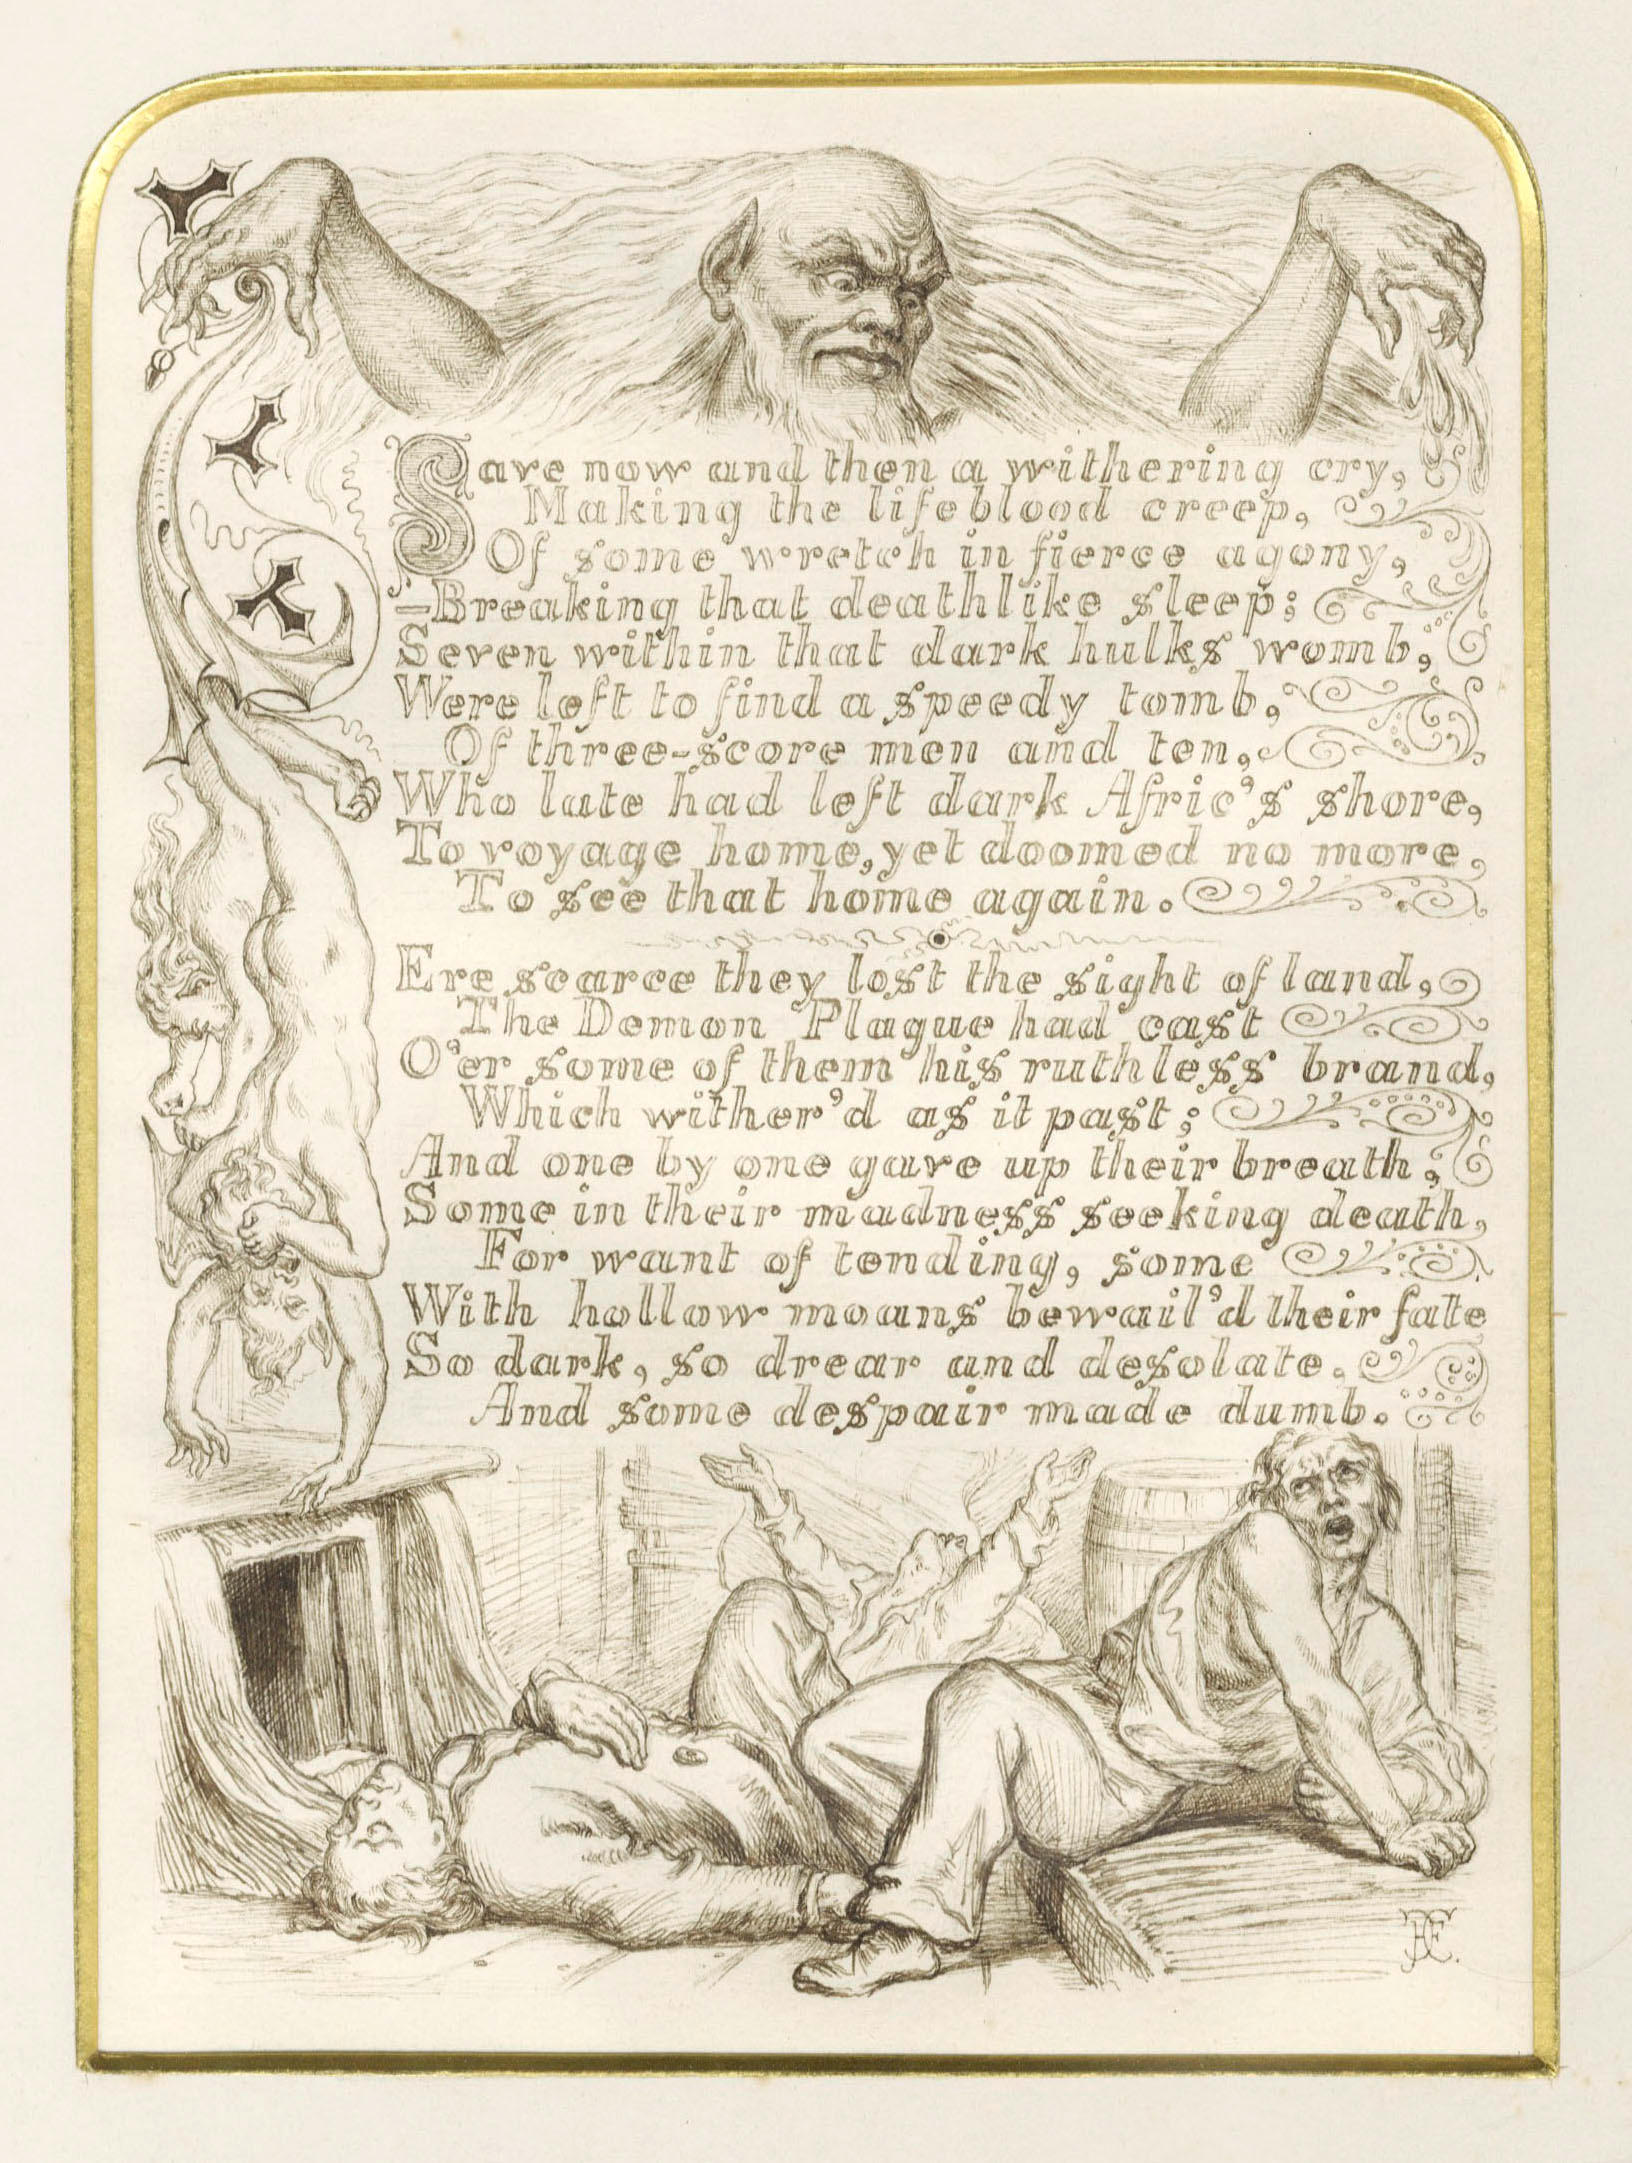 Save now and then a withering cry,
Making the lifeblood creep,
Of some wretch in fierce agony,
-Breaking that deathlike sleep:
Seven within that dark hulks womb,
Were left to find a speedy tomb,
Of three-score men and ten,
Who late had left dark Afric's shore,
To voyage home, yet doomed no more,
To see that home again.
Ere scarce they lost the sight of land,
The Demon Plague had cast
O'er some of them his ruthless brand,
Which wither'd as it past;
And one by one gave up their breath,
Some in their madness seeking death,
For want of tending, some
With hollow moans bewail'd their fate
So dark, so drear and desolate.
And some despair made dumb.